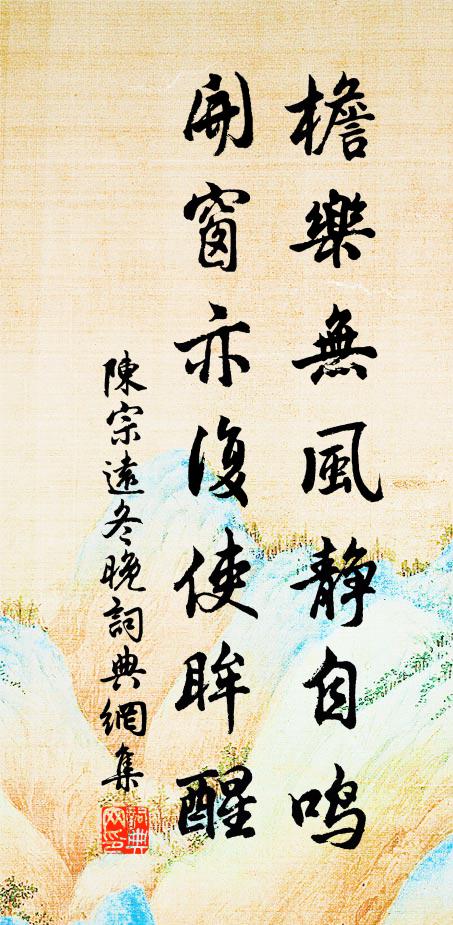 檐樂無風静自鸣
開窗亦復使眸醒
陳宗遠冬晚詞典網集
詞典
网印